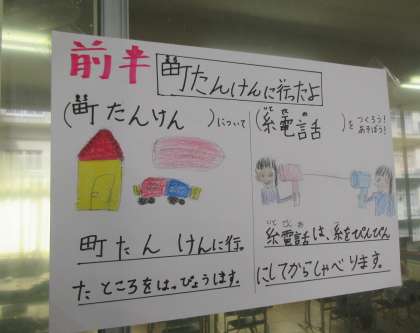 前半 町たんけんに行ったよ
(町たんけん)について
町たんけんに行っ
たところをはっぴょうします。
(糸電話)を つくろう！
あそぼう！
糸電話は、糸をぴんぴん
にしてからしゃべります。